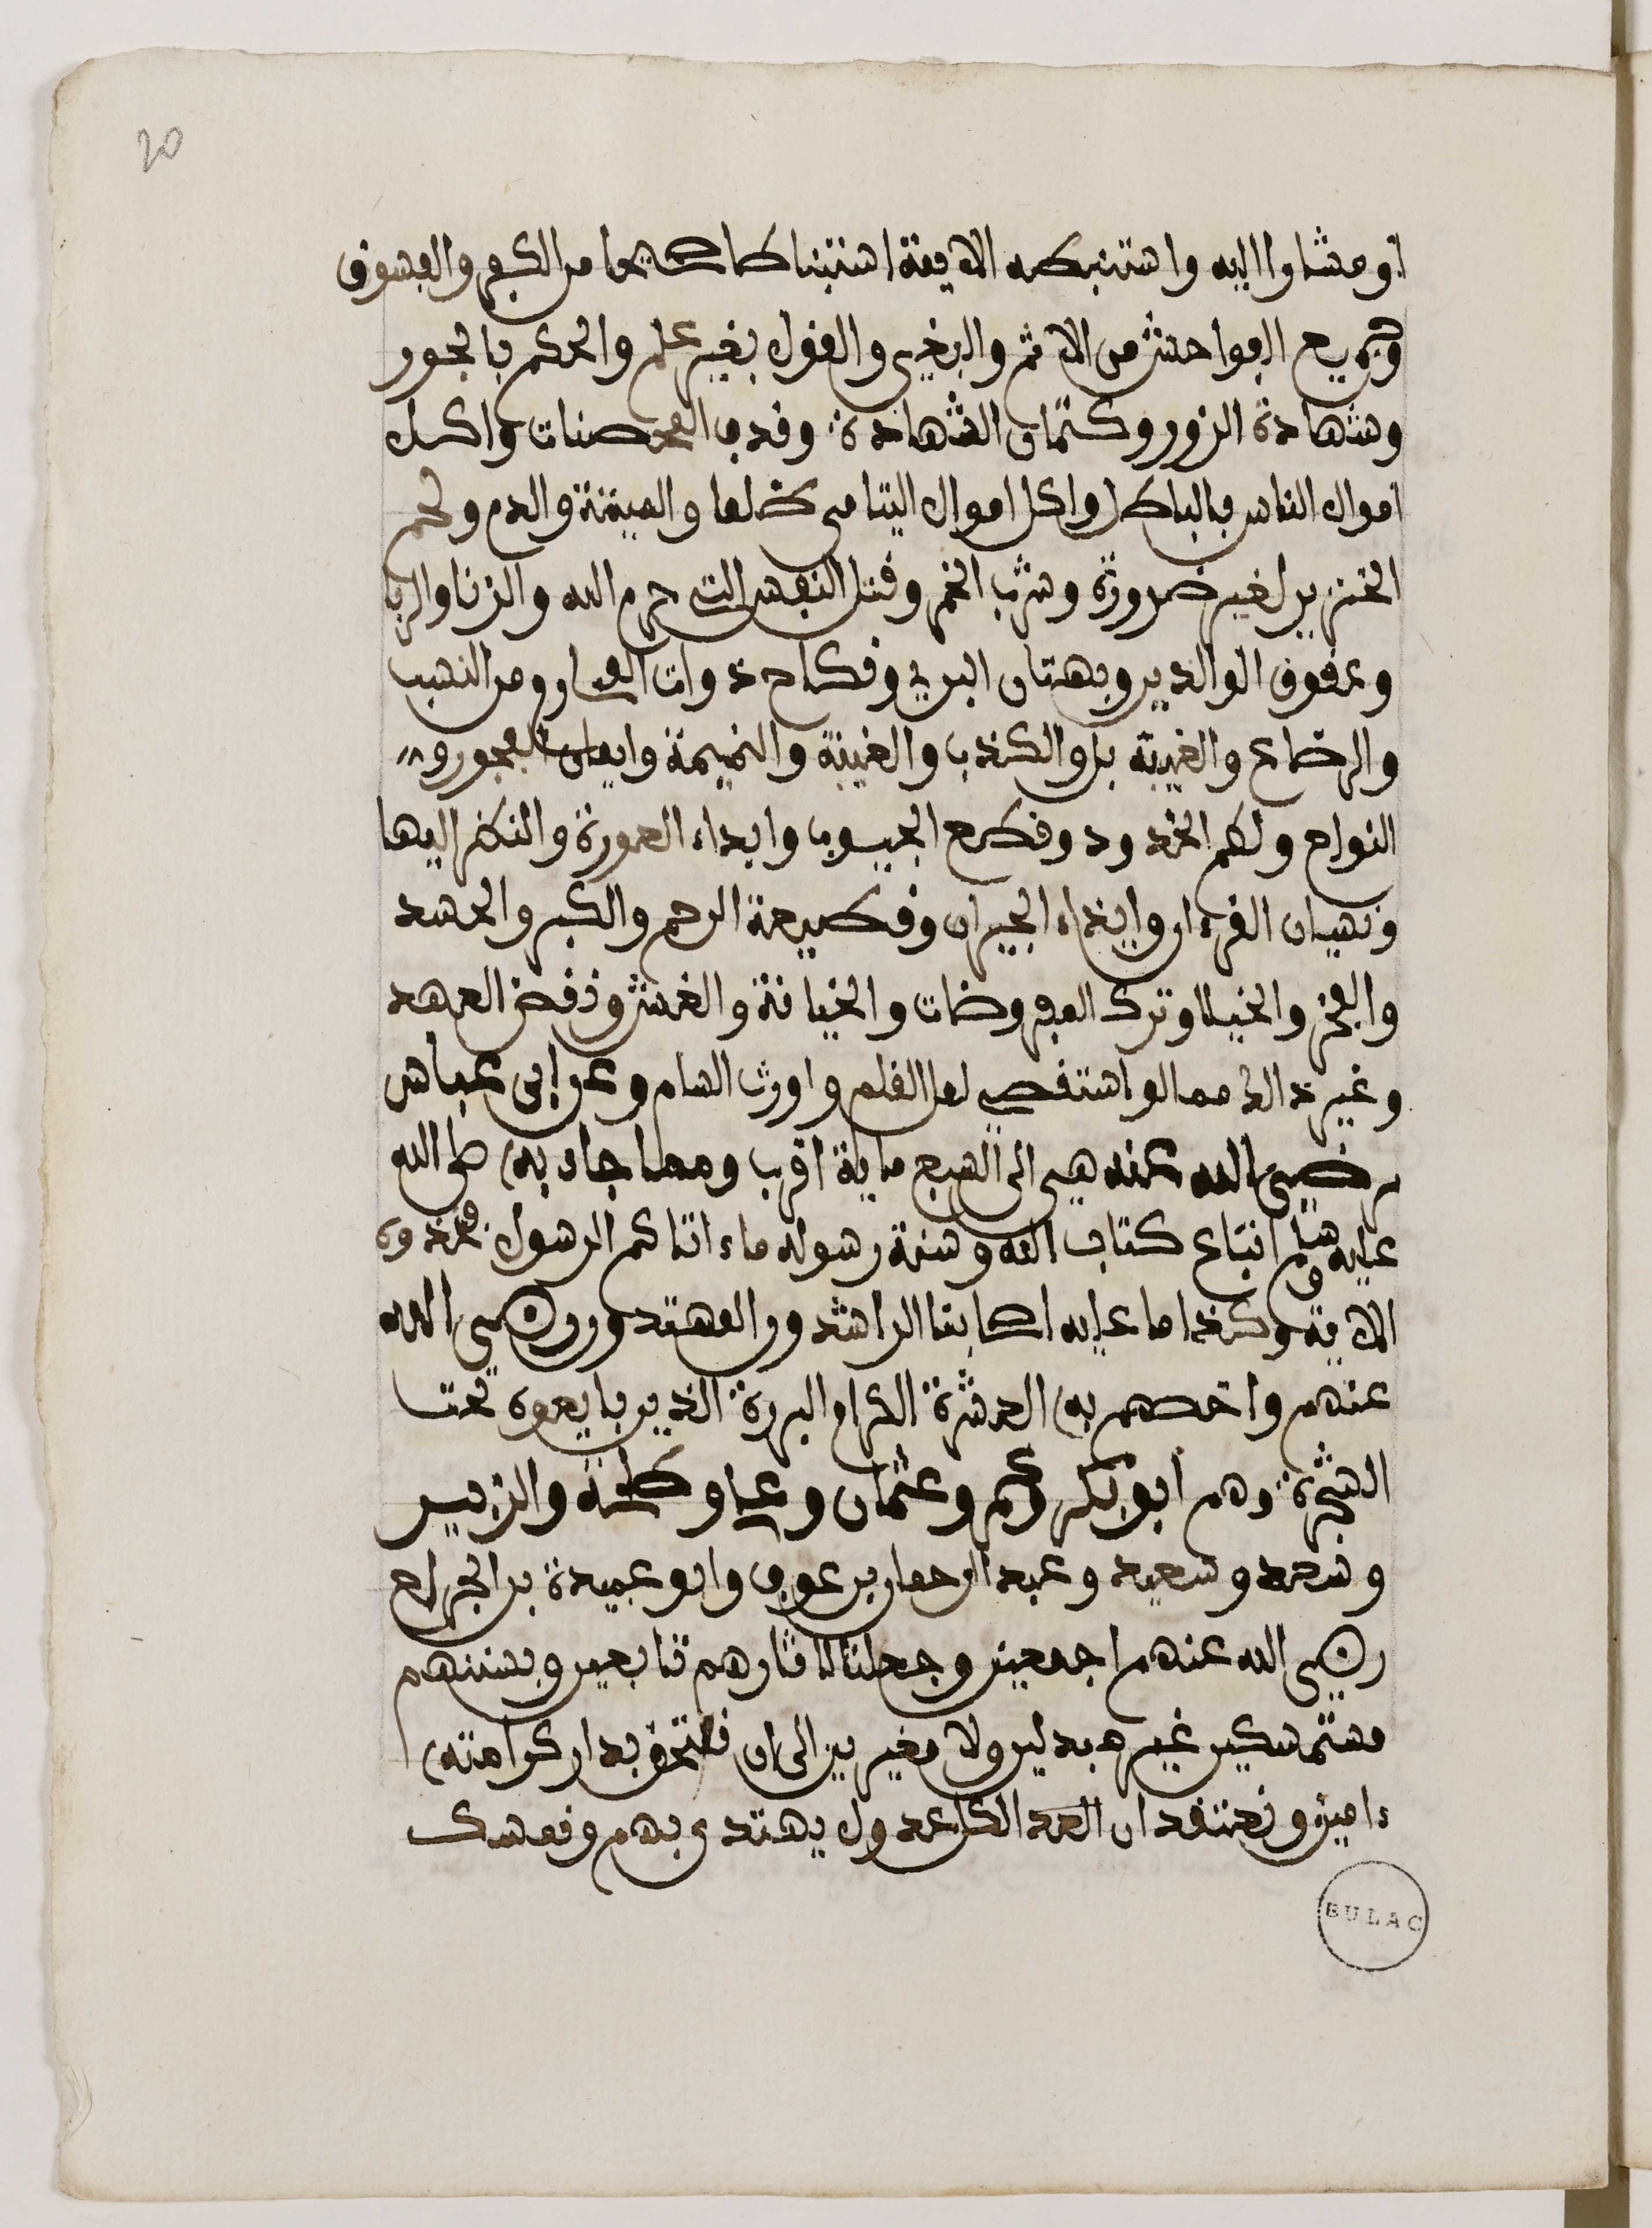 20
او مشاوا اليه واستنبطه الايمة استنباطا صحيحا من الكفر والفسوق
وجميع الفواحش من الاثم والبغي والقول بغير علم والحكم بالجور
وشهادة الزور وكتمان الشهادة وقذف المحصنات واكل
اموال الناس بالباطل واكل اموال اليتامى ظلما والميتة والدم ولحم
الخنزير لغير ضرورة وشرب الخمر وقتل النفس التي حرم الله والزنا والربا
وعقوق الوالدين وبهتان البريء ونكاح ذوات المحارم من النسب
والرضاع والغيبة بل والكذب والغيبة والنميمة وايمان الفجور و
النواح ولطم الخدود وقطع الجيوب وابداء العورة والنظر اليها
ونسيان القرءان وايذاء الجيران وقطيعة الرحم والكبر والحسد
والفخر والخيلا وترك المفروضات والخيانة والغش ونقض العهد
وغير ذالك مما لو استقصي لمل القلم واورث السام وعن ابن عباس
رضي الله عنه هي الى السبع ماية اقرب ومما جاء به صلى الله
عليه وسلم اتباع كتاب الله وسنة رسوله ماء اتاكم الرسول فخذوه
الاية وكذا ما عليه اصحابنا الراشدون المهتدون رضي الله
عنهم واخصهم به العشرة الكرام البررة الذين بايعوه تحت
الشجرة وهم ابو بكر وعمر وعثمان وعلي وطلحة والزبير
وسعد وسعيد وعبد الرحمان بن عوف وابو عبيدة بن الجراح
رضي الله عنهم اجمعين وجعلنا لاثارهم تابعين وبسنتهم
مستمسكين غير مبدلين ولا مغيرين الى ان نلتحق بدار كرامته
ءامين ونعتقد ان العد الكل عدول يهتدى بهم ونمسك
BULAC